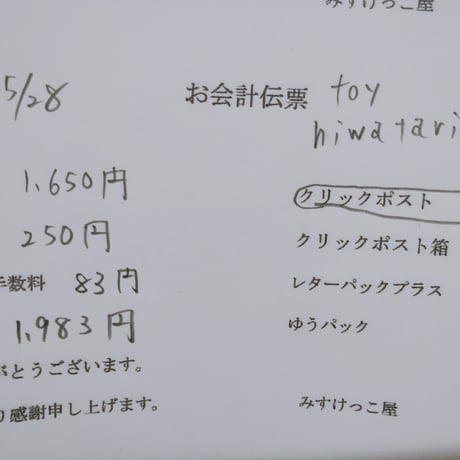 みすけっこ屋
5/28
お会計伝票 toy
hiwatari
1,650円
クリックポスト
250円
クリックポスト箱
手数料 83円
レターパックプラス
1,983円
ゆうパック
がとうございます。
り感謝申し上げます。
みすけっこ屋